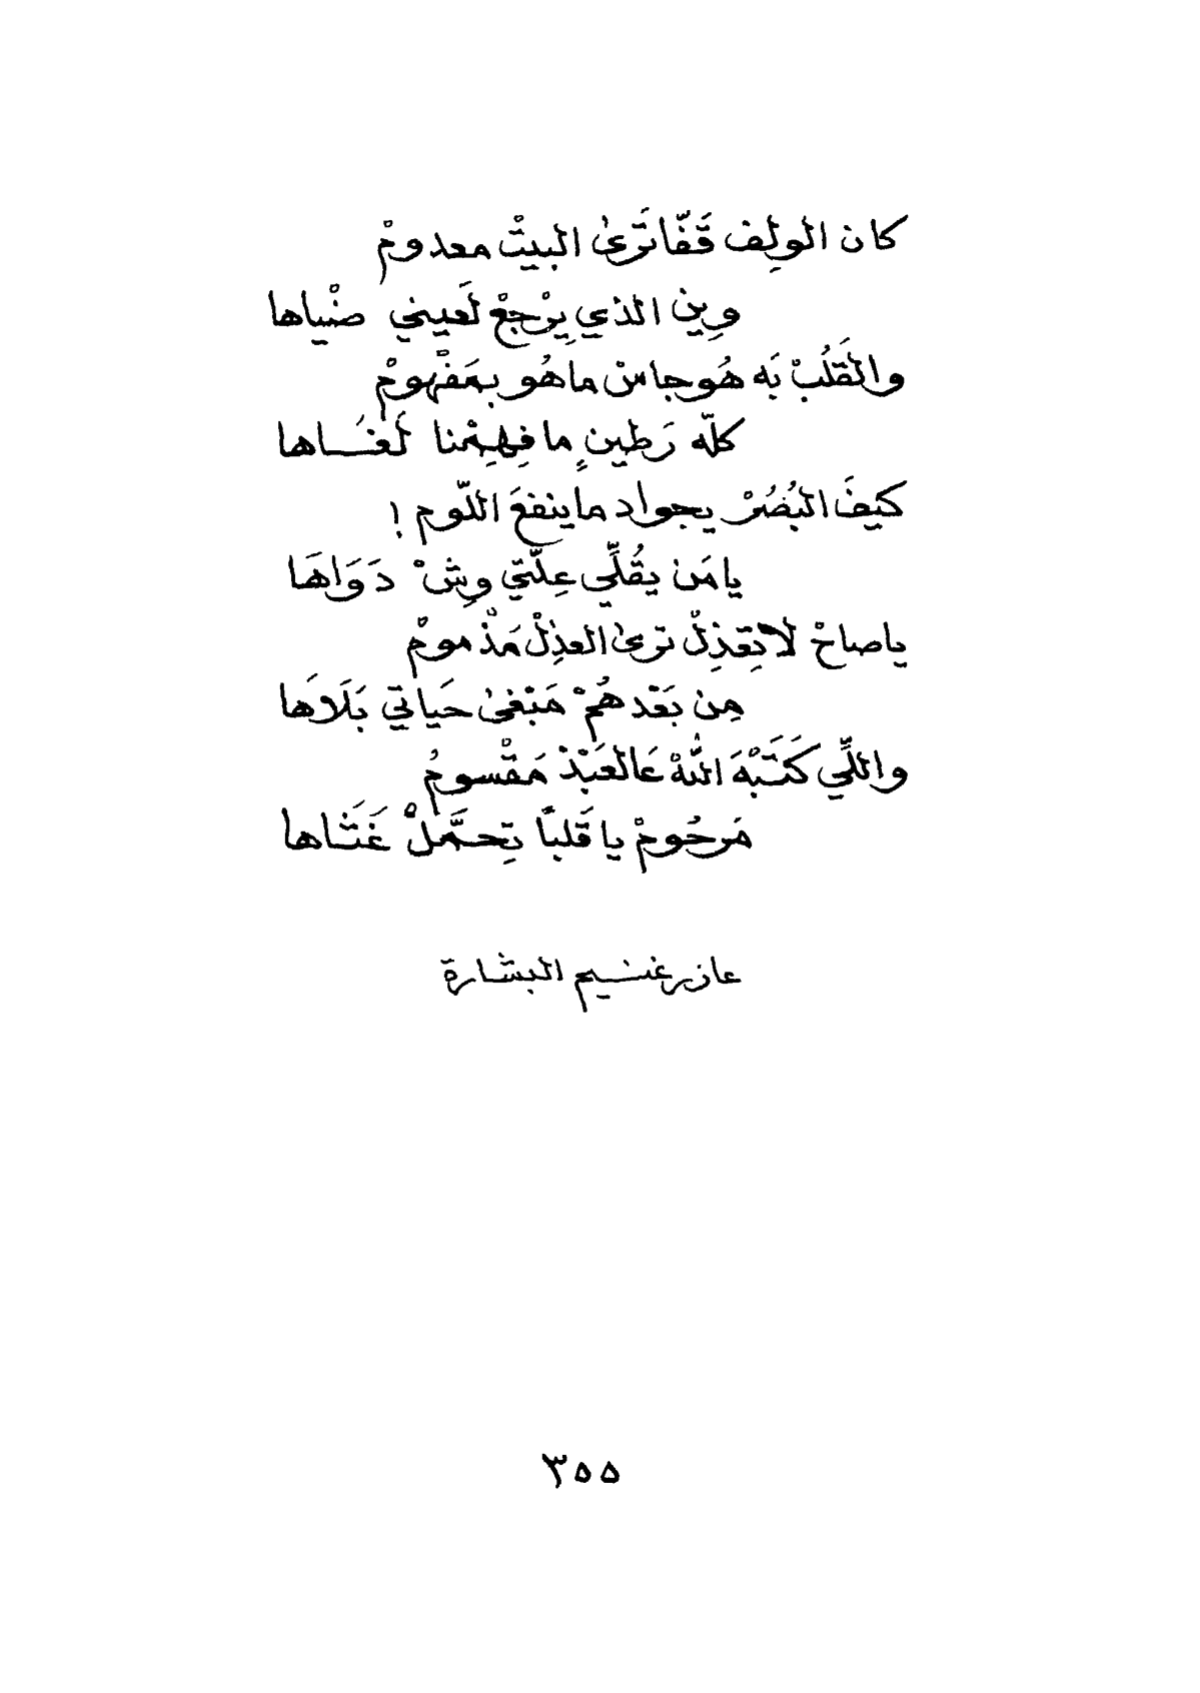 كان الولِف قَفّا تَرىٰ البيتْ معدومْ
وِين الذي يِرْجعْ لَعيني ضْياها
والقَلُبْ بَه هُوجاسْ ماهُو بمَفْهومْ
كلّه رَطينٍ ما فِهِمْنا لَغَاها
كيفَ البُصُرْ يجواد ما ينفعَ اللّوم !
يا مَن يقُلِّي عِلّتي وِشْ دَوَاهَا
ياصاحْ لاتِعْذِلْ ترىٰ العذِلْ مَذْمومْ
مِن بَعْدهُمْ مَبْغىٰ حَياتي بَلَاهَا
واللِّي كَتَبْهَ اللّٰهْ عَالعَبْدْ مَقْسومُ
مَرحُومْ يا قَلبًا تِحمَّلْ غَثَاها
عازر غنيم البشارة
٣٥٥